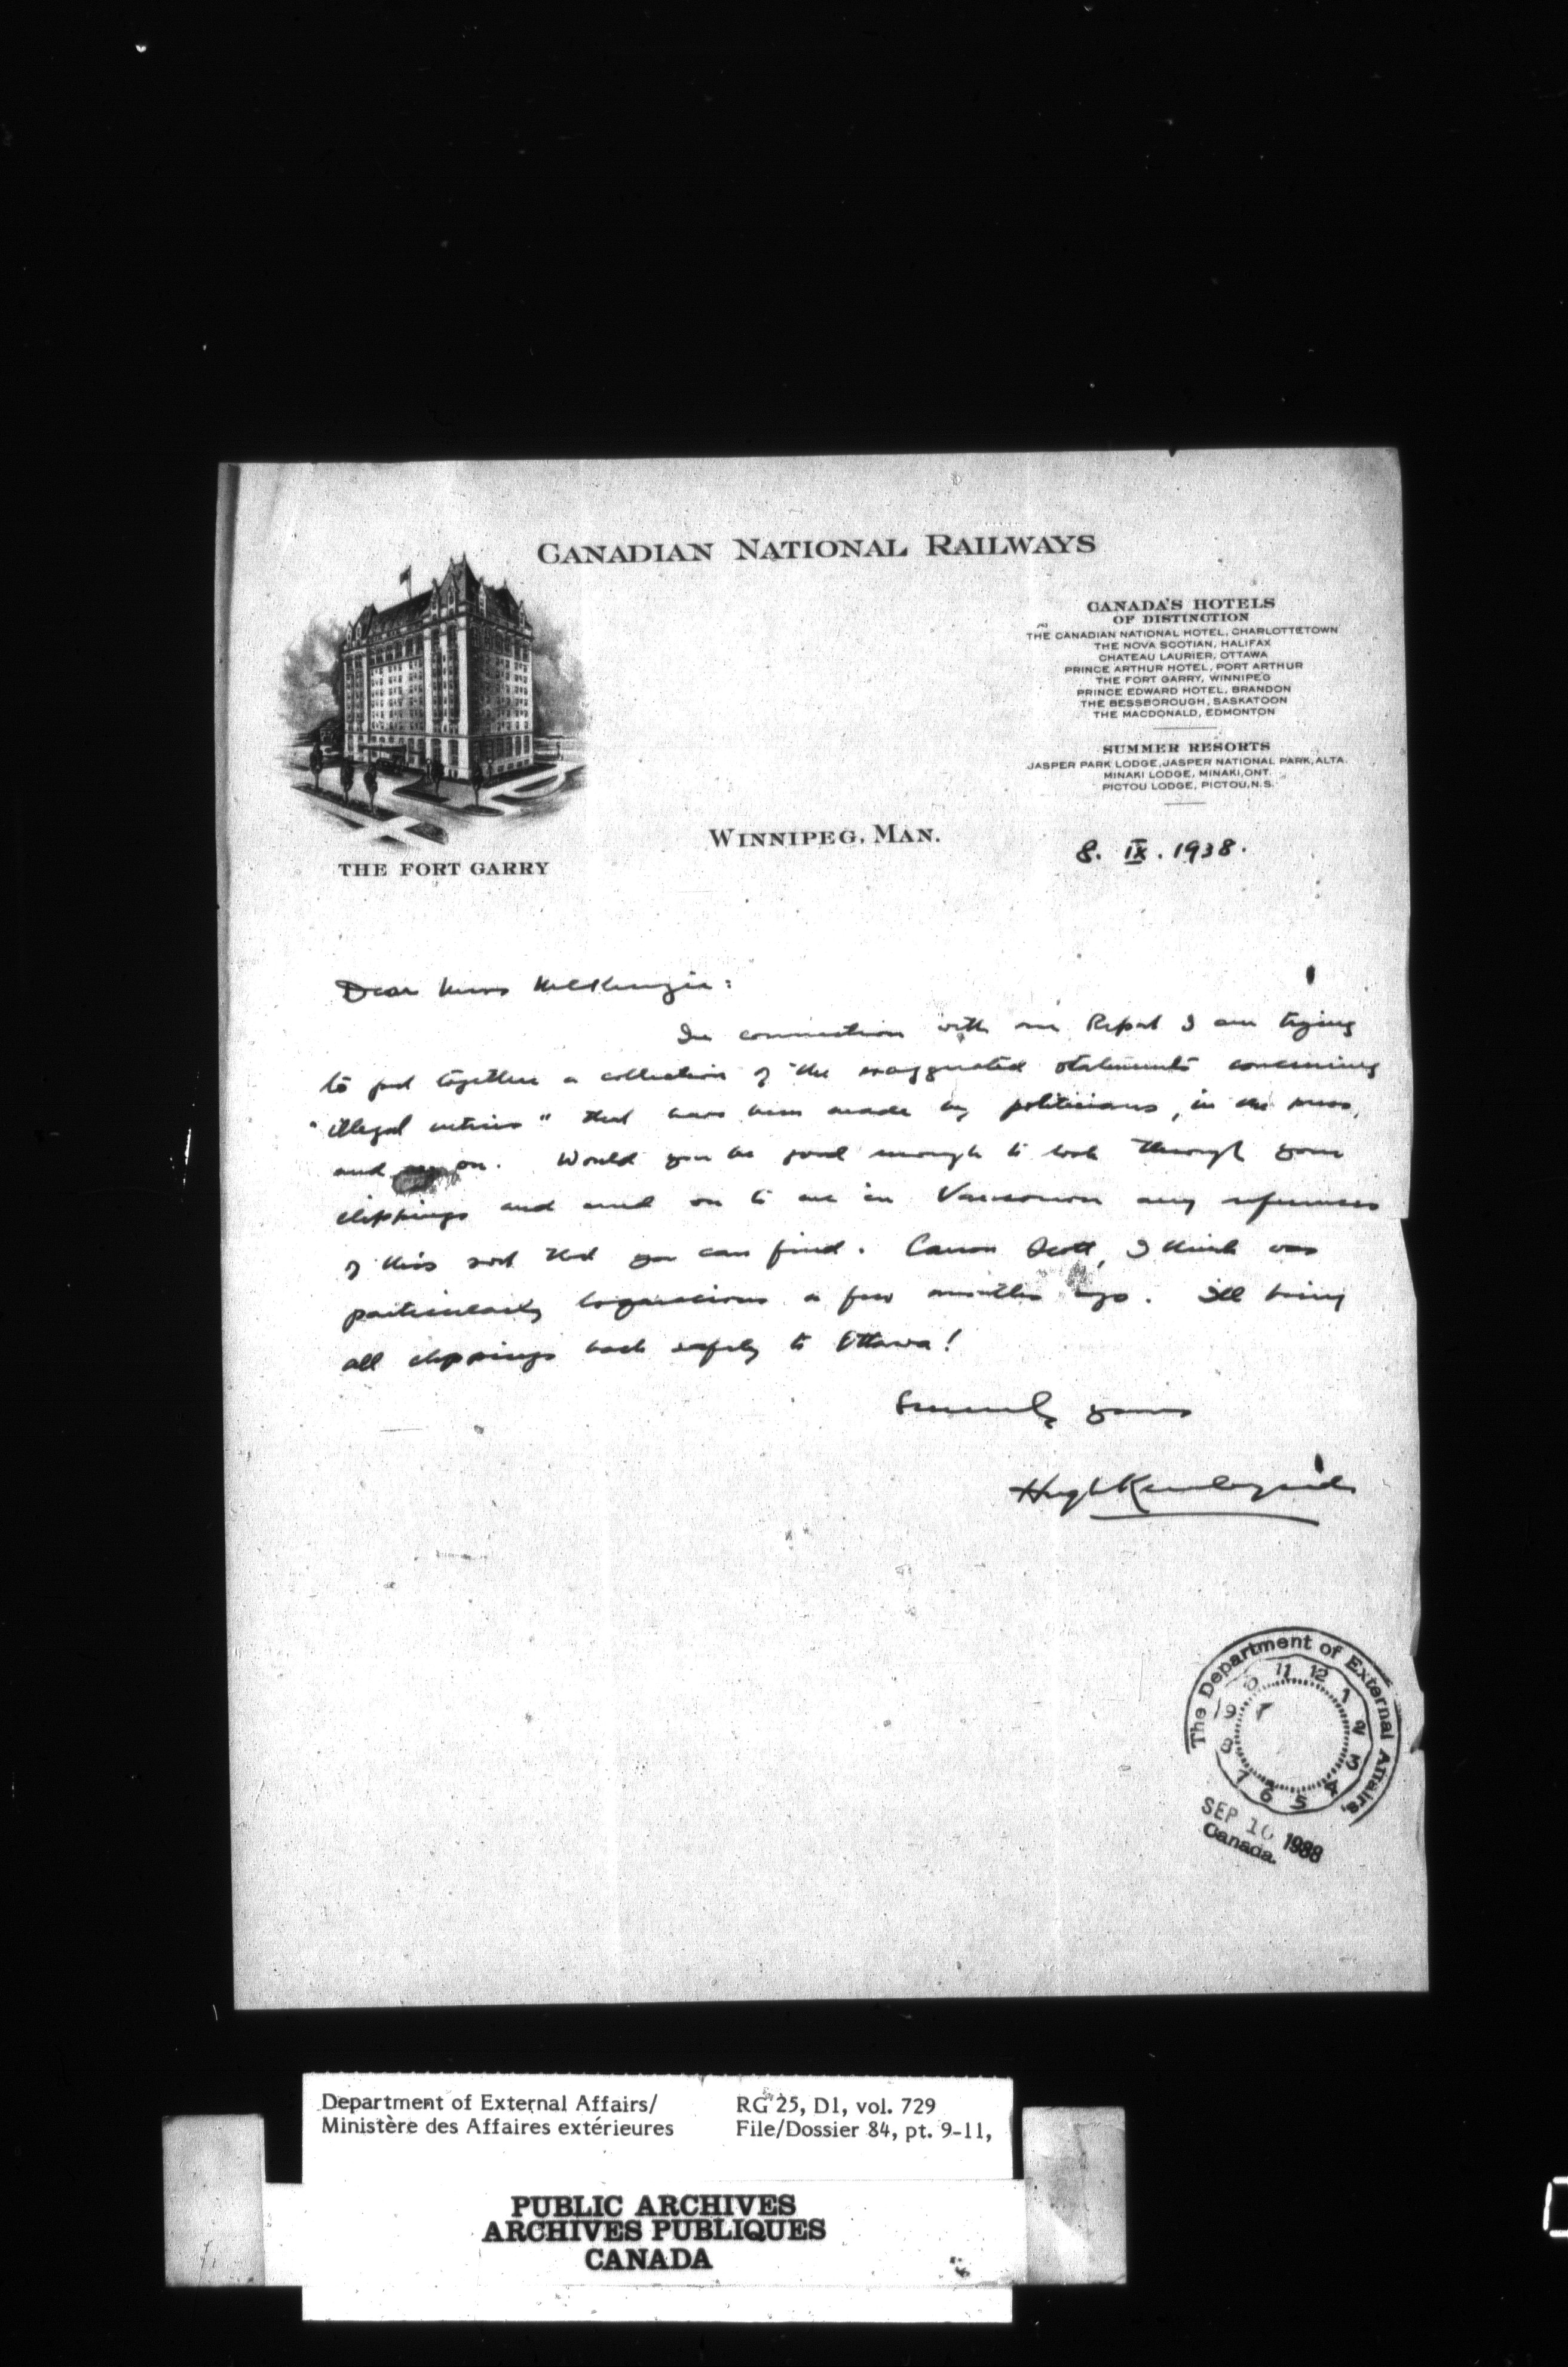 CANADIAN NATIONAL RAILWAYS
CANADA'S HOTELS
OF DISTINCTION
THE CANADIAN NATIONAL HOTEL, CHARLOTTETOWN
THE NOVA SCOTIAN, HALIFAX
CHATEAU LAURIER, OTTAWA
PRINCE ARTHUR HOTEL, PORT ARTHUR
THE FORT GARRY, WINNIPEG
PRINCE EDWARD HOTEL, BRANDON
THE BESSBOROUGH, SASKATOON
THE MACDONALD, EDMONTON
SUMMER RESORTS
JASPER PARK LODGE, JASPER NATIONAL PARK, ALTA.
MINAKI LODGE, MINAKI, ONT.
PICTOU LODGE, PICTOU, N.S.
WINNIPEG, MAN.
8. IX. 1938.
THE FORT GARRY
Dear Miss McKenzie:
In connection with our Report I am trying
to put together a collection of the exaggerated statements concerning
"illegal entries" that have been made by politicians, in the press,
and so on. Would you be good enough to look through your
clippings and send on to me in Vancouver any references
of this sort that you can find. Canon Scott, I think was
particularly loquacious a few months ago. I'll bring
all clippings back safely to Ottawa!
Sincerely yours
Hugh Keenleyside
The Department of External Affairs,
11 12 1 2 3 4 5 6 7 8 9
SEP 10 1938
Canada.
Department of External Affairs/
Ministère des Affaires extérieures
RG 25, D1, vol. 729
File/Dossier 84, pt. 9-11,
PUBLIC ARCHIVES
ARCHIVES PUBLIQUES
CANADA